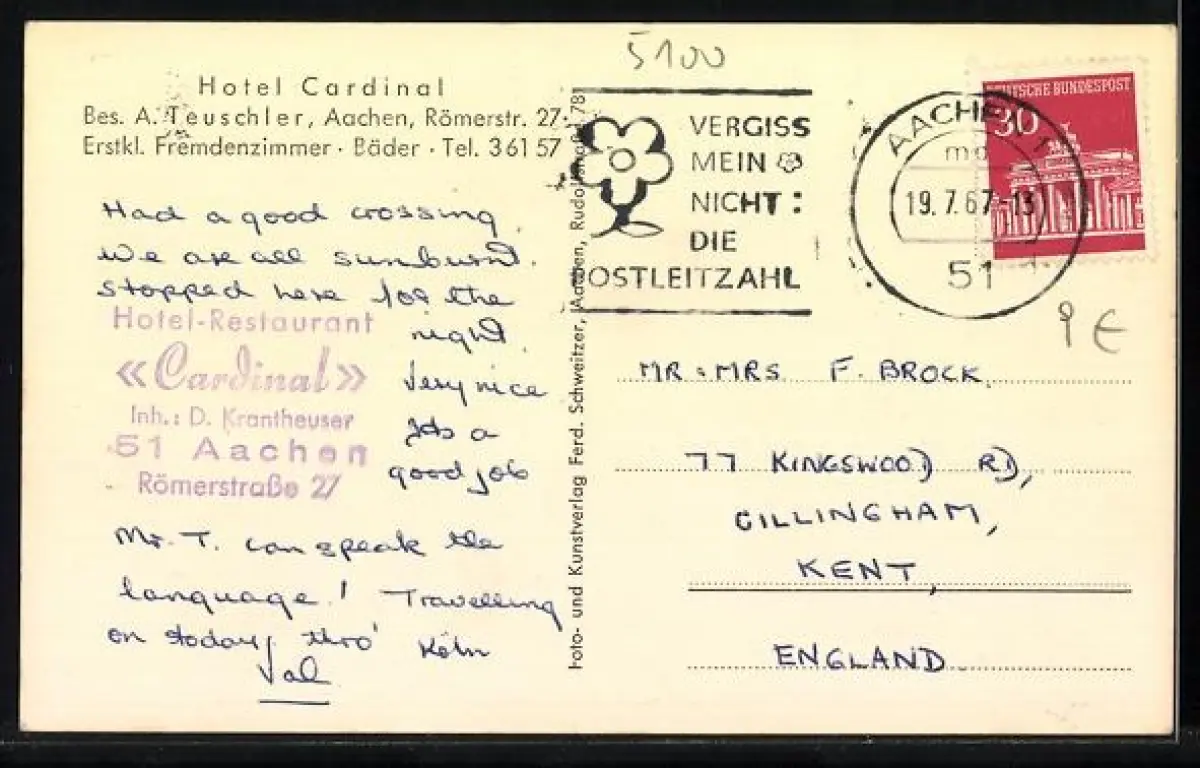 5100
Hotel Cardinal
Bes. A. Teuschler, Aachen, Römerstr. 27.
Erstkl. Fremdenzimmer · Bäder · Tel. 361 57
Had a good crossing.
We are all sunburnt.
Stopped here for the
night.
Very nice
Its a
good job
Mr. T. can speak the
language! Travelling
on today thro' Köln
Val
Hotel-Restaurant
«Cardinal»
Inh.: D. Krantheuser
51 Aachen
Römerstraße 27
Foto- und Kunstverlag Ferd. Schweitzer, Aachen, 78
VERGISS
MEIN
NICHT:
DIE
POSTLEITZAHL
AACHEN 1
mc
19.7.67-13
51
DEUTSCHE BUNDESPOST
30
9 €
MR. MRS F. BROCK.
77 KINGSWOOD RD,
GILLINGHAM,
KENT,
ENGLAND